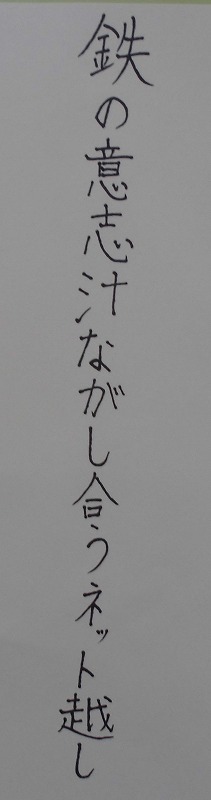 鉄の意志汁ながし合うネット越し